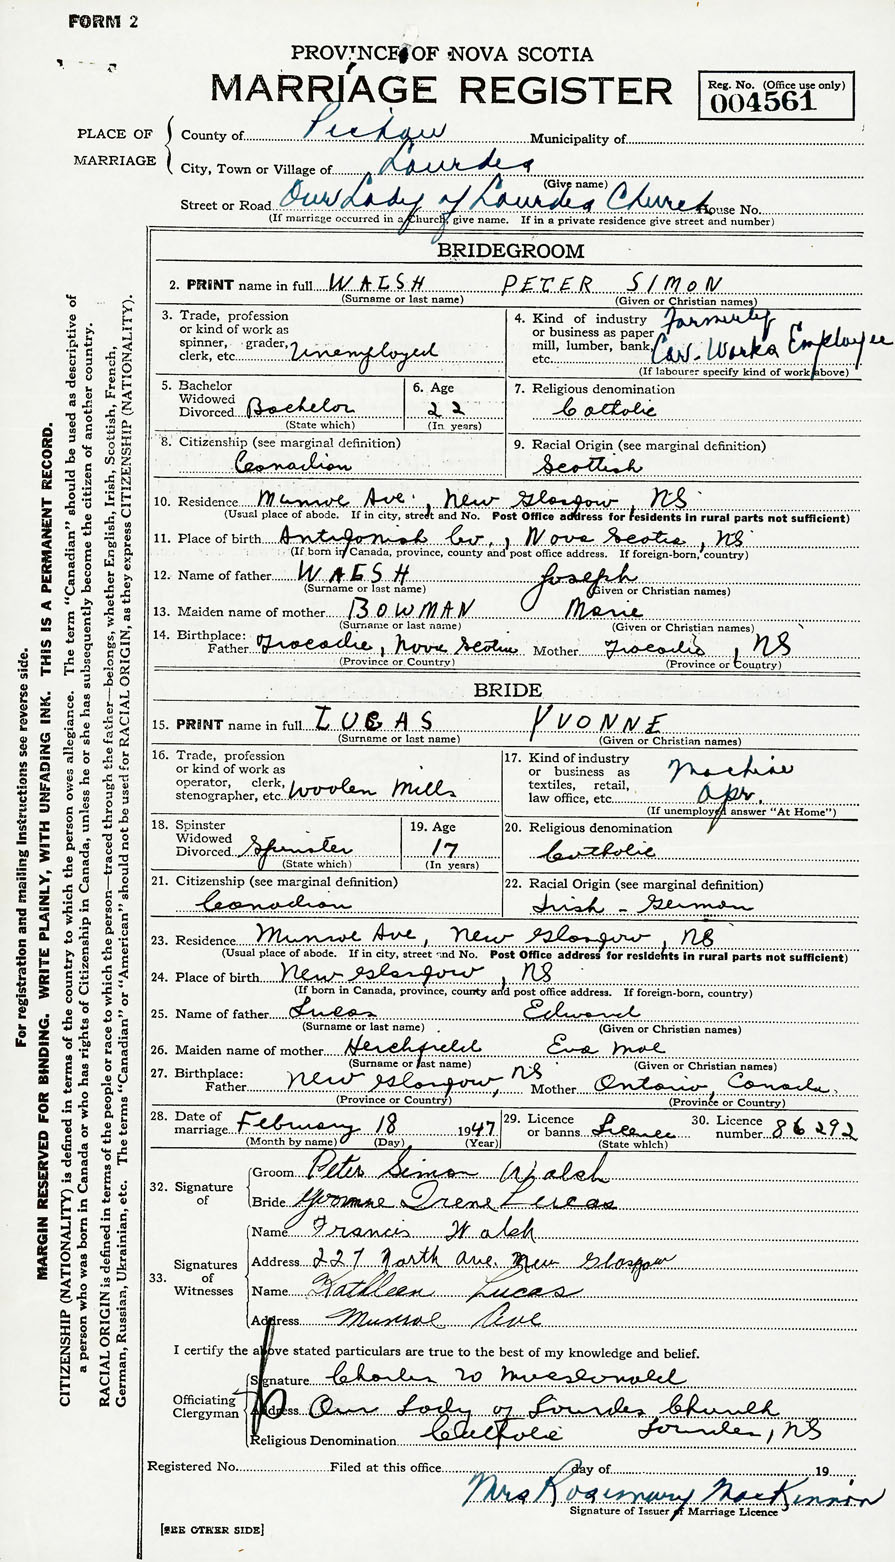 FORM 2
PROVINCE OF NOVA SCOTIA
MARRIAGE REGISTER
Reg. No. (Office use only)
004561
PLACE OF MARRIAGE
County of Pictou Municipality of
City, Town or Village of Lourdes
(Give name)
Street or Road Our Lady of Lourdes Church House No.
(If marriage occurred in a Church, give name. If in a private residence give street and number)
BRIDEGROOM
2. PRINT name in full WALSH PETER SIMON
(Surname or last name) (Given or Christian names)
3. Trade, profession
or kind of work as
spinner, grader,
clerk, etc. Unemployed
4. Kind of industry Formerly
or business as paper
mill, lumber, bank, Car Works Employee
etc.
(If labourer specify kind of work above)
5. Bachelor
Widowed
Divorced Bachelor
(State which)
6. Age
22
(In years)
7. Religious denomination
Catholic
8. Citizenship (see marginal definition)
Canadian
9. Racial Origin (see marginal definition)
Scottish
10. Residence Munroe Ave., New Glasgow, NS
(Usual place of abode. If in city, street and No. Post Office address for residents in rural parts not sufficient)
11. Place of birth Antigonish Co., Nova Scotia, NS
(If born in Canada, province, county and post office address. If foreign-born, country)
12. Name of father WALSH Joseph
(Surname or last name) (Given or Christian names)
13. Maiden name of mother BOWMAN Marie
(Surname or last name) (Given or Christian names)
14. Birthplace:
Father Tracadie, Nova Scotia Mother Tracadie, NS
(Province or Country) (Province or Country)
BRIDE
15. PRINT name in full LUCAS YVONNE
(Surname or last name) (Given or Christian names)
16. Trade, profession
or kind of work as
operator, clerk,
stenographer, etc. Woolen Mills
17. Kind of industry
or business as Machine
textiles, retail,
law office, etc. Opr.
(If unemployed answer "At Home")
18. Spinster
Widowed
Divorced Spinster
(State which)
19. Age
17
(In years)
20. Religious denomination
Catholic
21. Citizenship (see marginal definition)
Canadian
22. Racial Origin (see marginal definition)
Irish - German
23. Residence Munroe Ave, New Glasgow, NS
(Usual place of abode. If in city, street and No. Post Office address for residents in rural parts not sufficient)
24. Place of birth New Glasgow, NS
(If born in Canada, province, county and post office address. If foreign-born, country)
25. Name of father Lucas Edward
(Surname or last name) (Given or Christian names)
26. Maiden name of mother Herchfield Eva Mae
(Surname or last name) (Given or Christian names)
27. Birthplace:
Father New Glasgow, NS Mother Ontario, Canada.
(Province or Country) (Province or Country)
28. Date of
marriage February 18 1947
(Month by name) (Day) (Year)
29. Licence
or banns Licence
(State which)
30. Licence
number 86292
32. Signature of
Groom Peter Simon Walsh
Bride Yvonne Irene Lucas
33. Signatures of Witnesses
Name Francis Walsh
Address 227 North Ave. New Glasgow
Name Kathleen Lucas
Address Munroe Ave
I certify the above stated particulars are true to the best of my knowledge and belief.
Officiating Clergyman
Signature Charles W MacDonald
Address Our Lady of Lourdes Church
Religious Denomination Catholic Lourdes, NS
Registered No. Filed at this office day of 19
Mrs Rosemary MacKinnon
Signature of Issuer of Marriage Licence
[SEE OTHER SIDE]
For registration and mailing instructions see reverse side.
MARGIN RESERVED FOR BINDING. WRITE PLAINLY, WITH UNFADING INK. THIS IS A PERMANENT RECORD.
CITIZENSHIP (NATIONALITY) is defined in terms of the country to which the person owes allegiance. The term "Canadian" should be used as descriptive of
a person who was born in Canada or who has rights of Citizenship in Canada, unless he or she has subsequently become the citizen of another country.
RACIAL ORIGIN is defined in terms of the people or race to which the person—traced through the father—belongs, whether English, Irish, Scottish, French,
German, Russian, Ukrainian, etc. The terms "Canadian" or "American" should not be used for RACIAL ORIGIN, as they express CITIZENSHIP (NATIONALITY).